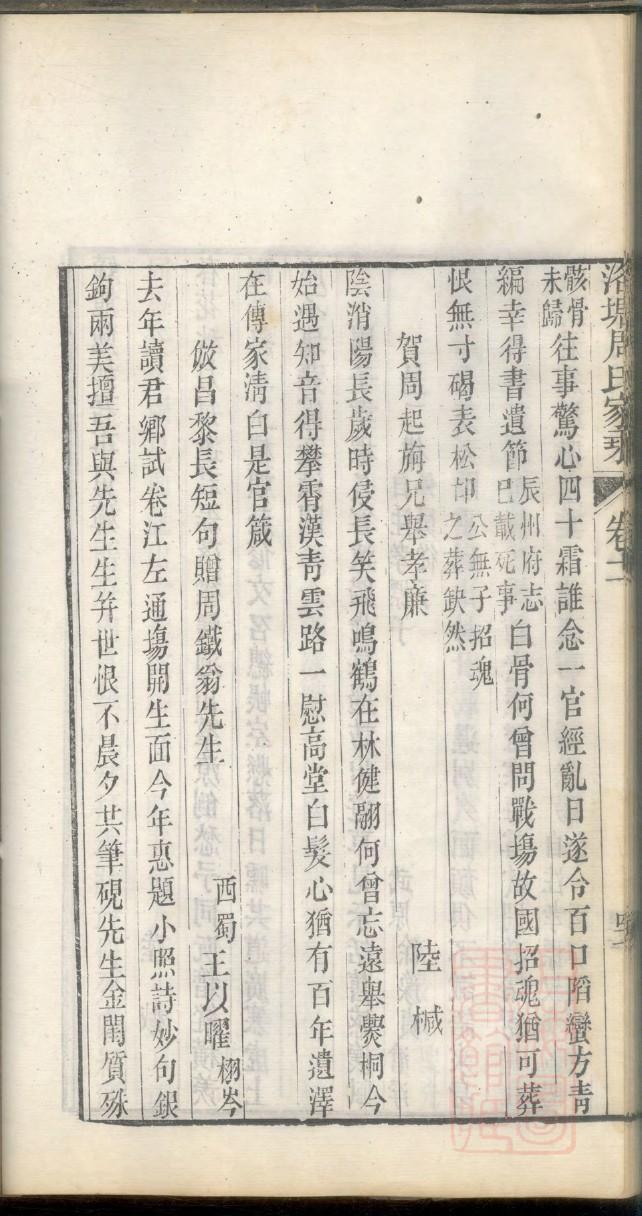 洛塘周氏家乘 卷二
骸骨未歸往事驚心四十霜誰念一官經亂日遂令百口陷蠻方青
編幸得書遺節辰州府志已載死事白骨何曾問戰塲故國招魂猶可葬
恨無寸碣表松卬公無子招魂之葬缺然
賀周起旃兄舉孝廉 陸棫
陰消陽長歲時侵長笑飛鳴鶴在林健翮何曾忘遠舉爨桐今
始遇知音得攀霄漢青雲路一慰高堂白髮心猶有百年遺澤
在傳家淸白是官箴
倣昌黎長短句贈周鐵翁先生 西蜀王以曜栩岑
去年讀君鄉試卷江左通塲開生面今年惠題小照詩妙句銀
鉤兩美擅吾與先生生幷世恨不晨夕共筆硯先生金閨質殊